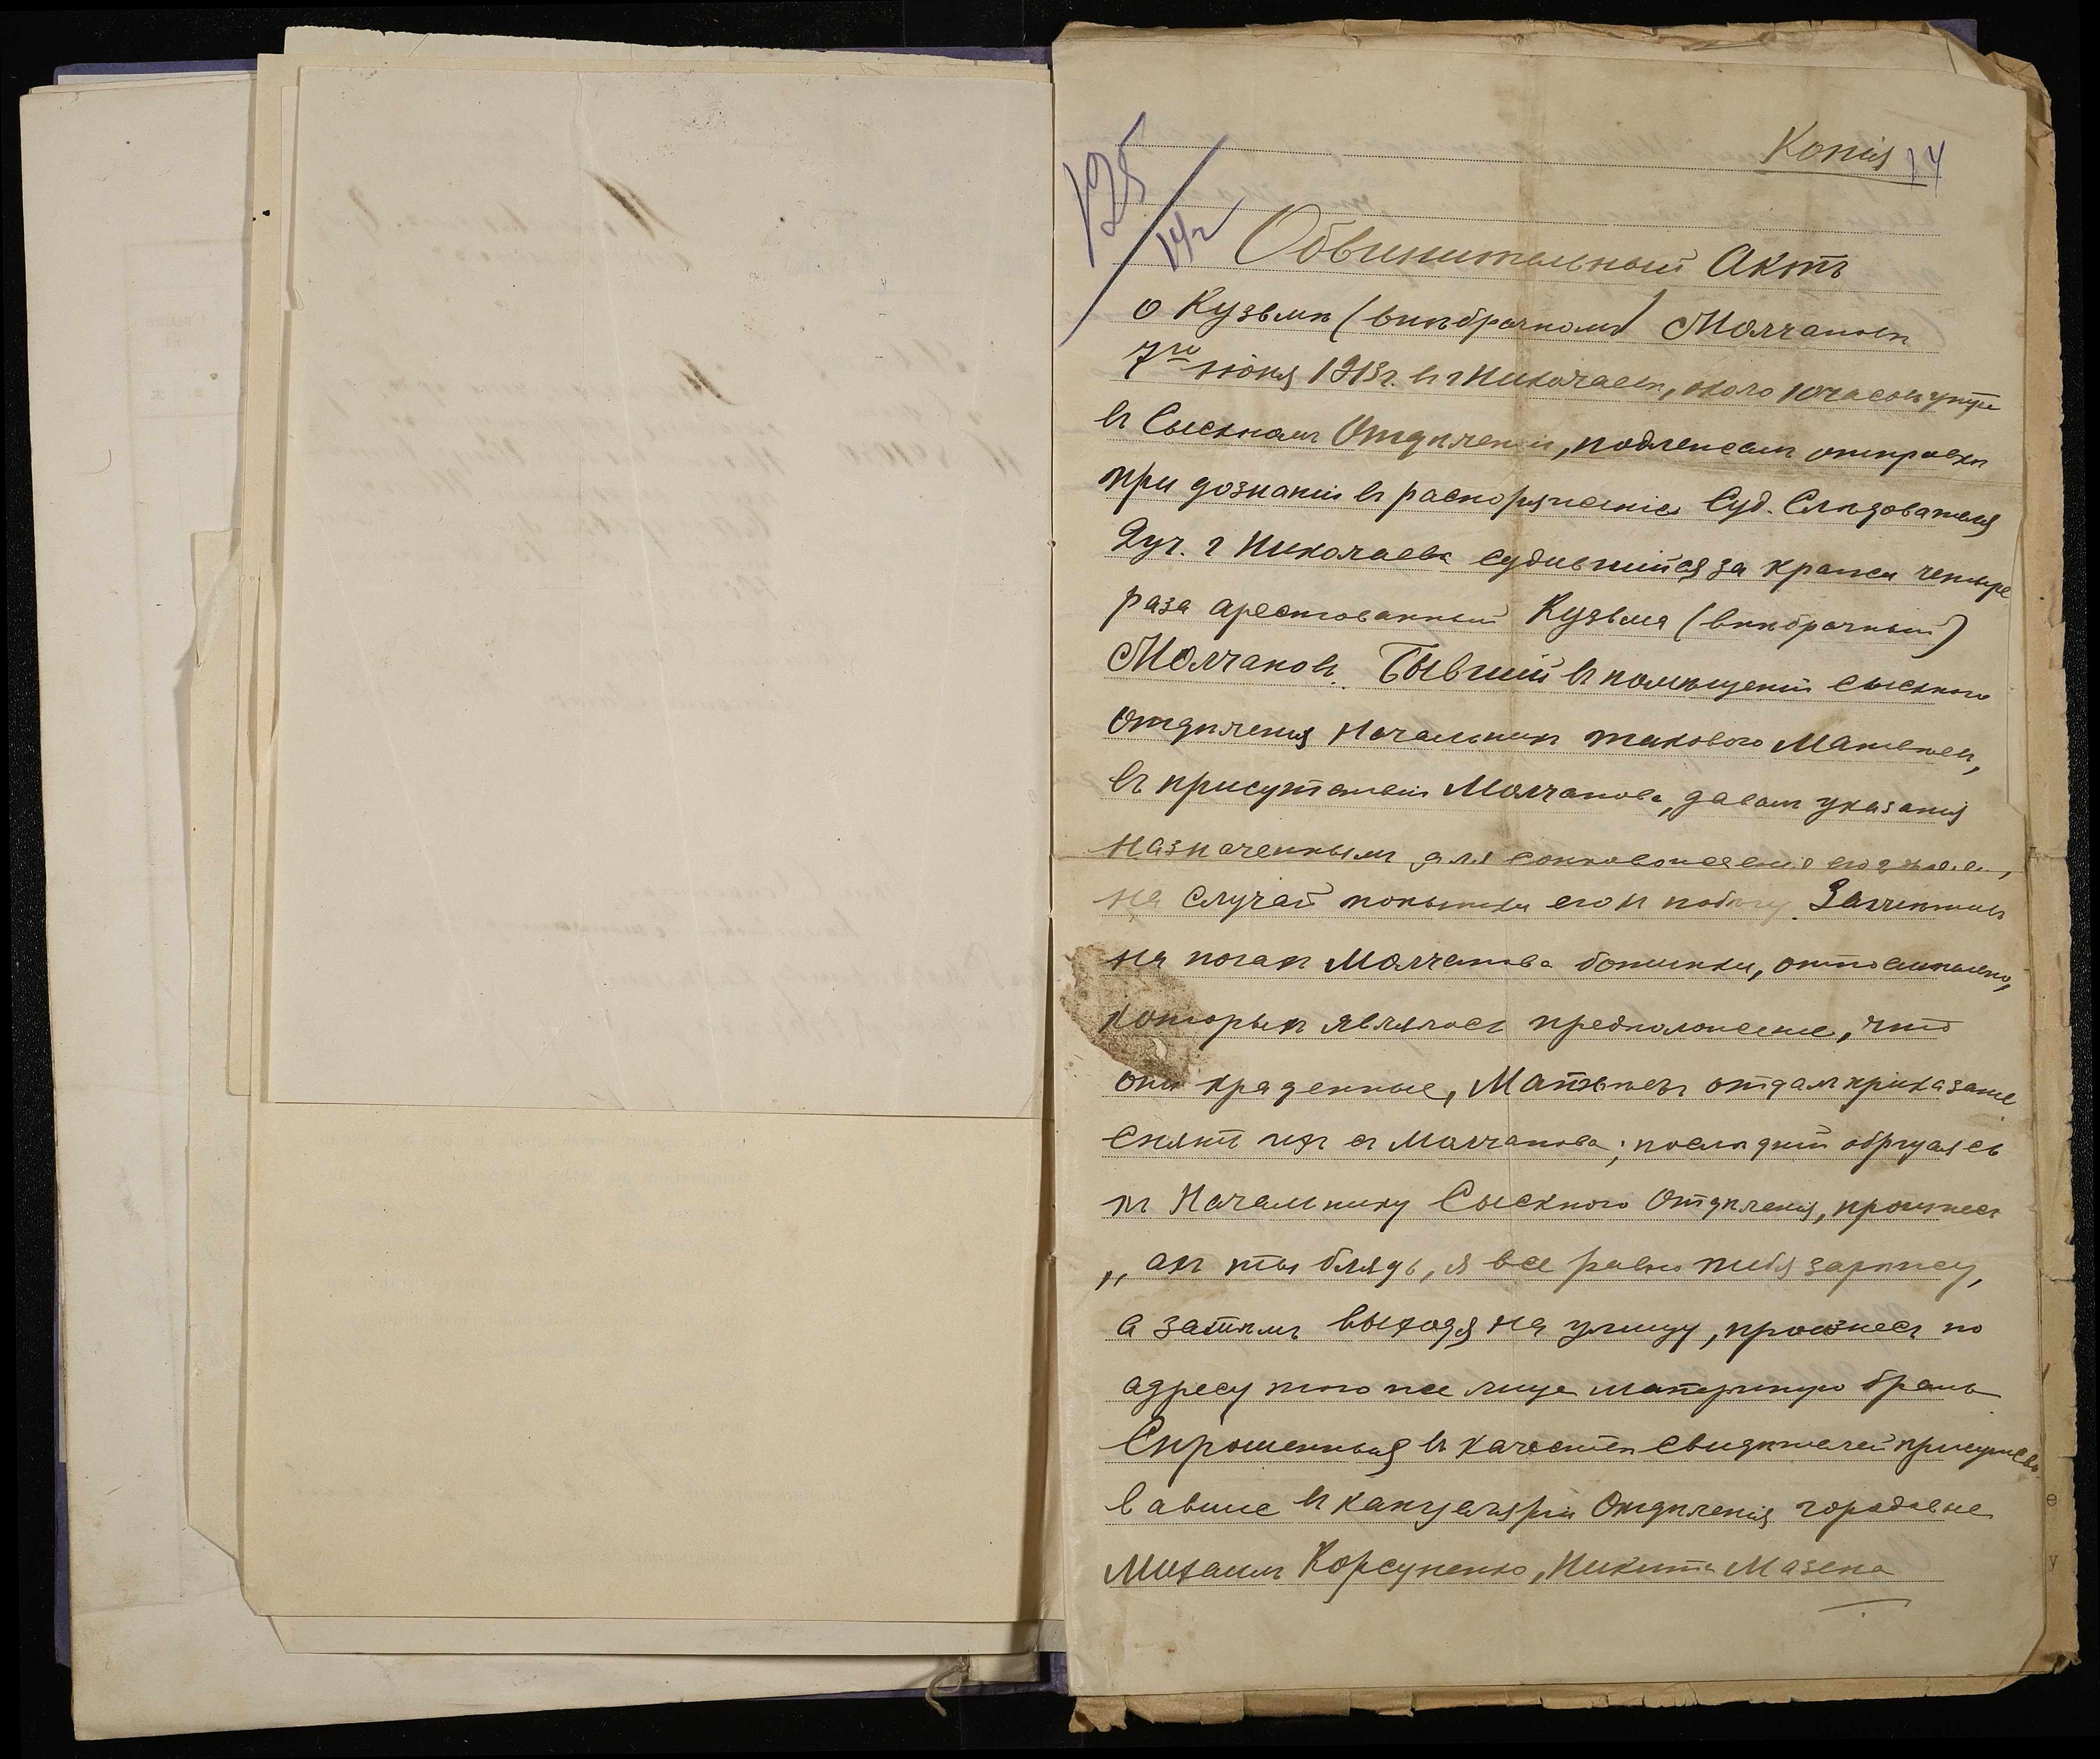 Копія 14
125
14/2
Обвинительный Актъ
о Кузьмѣ (внѣбрачномъ) Молчановѣ
7го іюня 1913г. въ г Николаевѣ, около 10 часовъ утра
въ Сыскномъ Отдѣленіи, подлежалъ отправкѣ
при дознаніи въ распоряженіе Суд. Слѣдователя
2 уч. г Николаева судившійся за кражи четыре
раза арестованный Кузьма (внѣбрачный)
Молчановъ. Бывшій въ помѣщеніи сыскного
Отдѣленія Начальникъ такового
въ присутствіи Молчанова, давалъ указанія
назначеннымъ для сопровожденія его
на случай попытки его къ побѣгу. Замѣтивъ
на ногахъ Молчанова ботинки, относительно,
которыхъ явилось предположеніе, что
они краденные, отдалъ приказаніе
снять ихъ съ Молчанова; послѣдній обращаясь
къ Начальнику Сыскного Отдѣленія, произнесъ
„ахъ ты блядь, я все равно тебя зарѣжу,
а затѣмъ выходя на улицу, произнесъ по
адресу того же лица матерную брань
Спрошенныя въ качествѣ свидѣтелей присутство
вавшіе въ канцеляріи Отдѣленія городовые
Михаилъ Корсуненко, Никита Мазепа